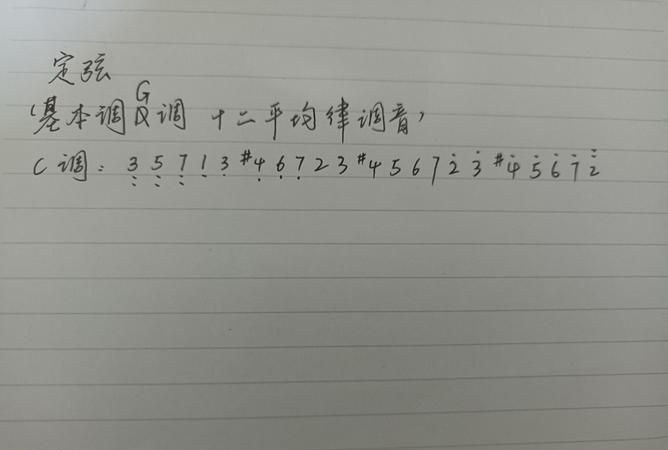 定弦
(基本调G调 十二平均律调音)
C调: 3̤̣ 5̤̣ 7̤̣ 1̣ 3̣ #4̣ 6̣ 7̣ 2 3 #4 5 6 7 2̇ 3̇ #4̇ 5̇ 6̇ 7̇ 2̈